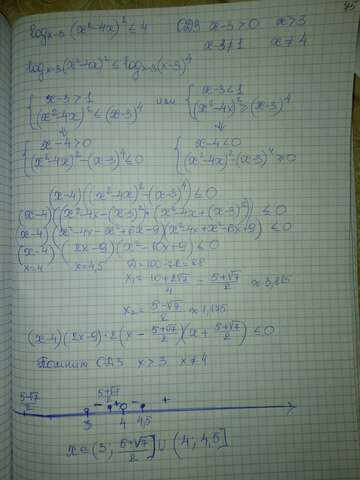 45
log_{x-3}(x²-4x)² ≤ 4 ОДЗ x-3>0 x>3
x-3≠1 x≠4
log_{x-3}(x²-4x)² ≤ log_{x-3}(x-3)⁴
{ x-3>1 или { x-3<1
(x²-4x)² ≤ (x-3)⁴ (x²-4x)² ≥ (x-3)⁴
⇓ ⇓
{ x-4>0 { x-4<0
(x²-4x)²-(x-3)⁴ ≤ 0 (x²-4x)²-(x-3)⁴ ≥ 0
(x-4)((x²-4x)²-(x-3)⁴) ≤ 0
(x-4)(x²-4x-(x-3)²)(x²-4x+(x-3)²) ≤ 0
(x-4)(x²-4x-x²+6x-9)(x²-4x+x²-6x+9) ≤ 0
(x-4)(2x-9)(2x²-10x+9) ≤ 0
x=4 x=4,5 D=100-72=28
x₁= 10+2√7/4 = 5+√7/2 ≈ 3,825
x₂= 5-√7/2 ≈ 1,175
(x-4)(2x-9)·2(x-5+√7/2)(x+5+√7/2) ≤ 0
Помним ОДЗ x>3 x≠4
5-√7/2 5+√7/2
- + - +
3 4 4,5
x∈(3; 5+√7/2]∪(4; 4,5]